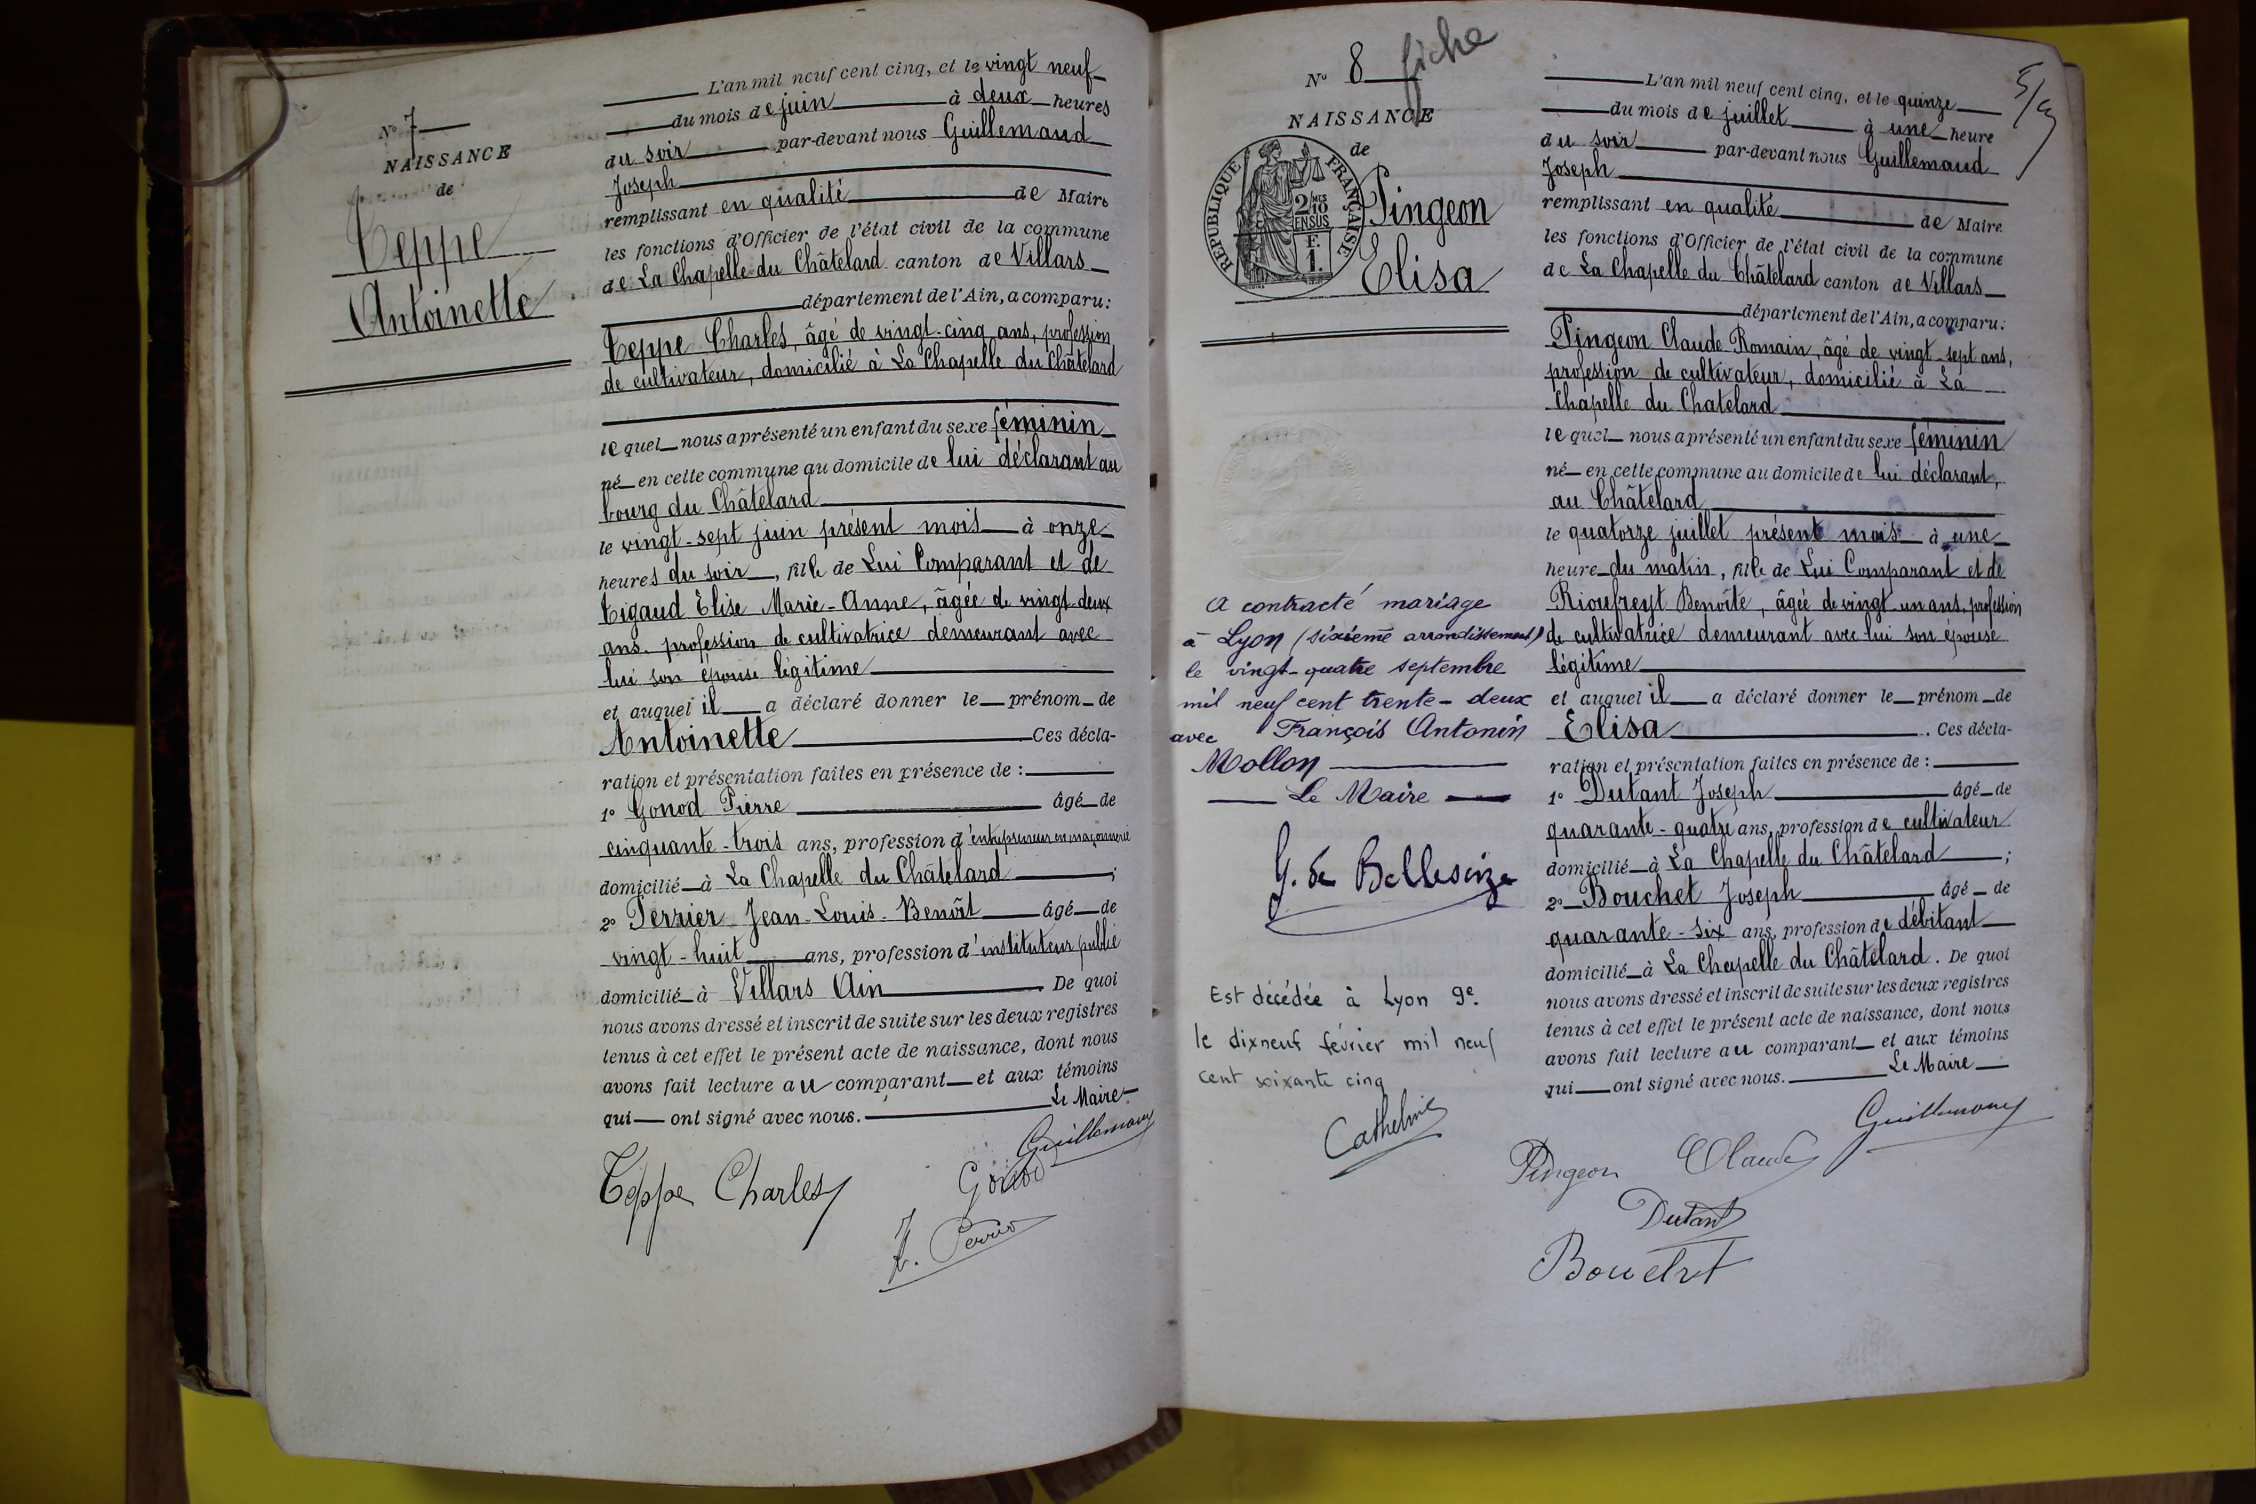 N° 7
NAISSANCE
de
Teppe
Antoinette
L'an mil neuf cent cinq, et le vingt neuf
du mois de juin à deux heures
du soir par-devant nous Guillemaud
Joseph
remplissant en qualité de Maire
les fonctions d'Officier de l'état civil de la commune
de La Chapelle du Châtelard canton de Villars
département de l'Ain, a comparu:
Teppe Charles, âgé de vingt-cinq ans, profession
de cultivateur, domicilié à La Chapelle du Châtelard
lequel nous a présenté un enfant du sexe féminin
né en cette commune au domicile de lui déclarant au
bourg du Châtelard
le vingt-sept juin présent mois à onze
heures du soir, fille de Lui Comparant et de
Tigaud Elise Marie-Anne, âgée de vingt-deux
ans. profession de cultivatrice demeurant avec
lui son épouse légitime
et auquel il a déclaré donner le prénom de
Antoinette Ces décla-
ration et présentation faites en présence de :
1° Gonod Pierre âgé de
cinquante-trois ans, profession d'entrepreneur en maçonnerie
domicilié à La Chapelle du Châtelard ;
2° Perrier Jean-Louis-Benoît âgé de
vingt-huit ans, profession d'instituteur public
domicilié à Villars Ain De quoi
nous avons dressé et inscrit de suite sur les deux registres
tenus à cet effet le présent acte de naissance, dont nous
avons fait lecture au comparant et aux témoins
qui ont signé avec nous. Le Maire
Guillemaud
Teppe Charles Gonod
Perrier
N° 8 fiche
NAISSANCE
de
REPUBLIQUE FRANÇAISE
2/10
EN SUS
F.
1.
Pingeon
Elisa
A contracté mariage
à Lyon (sixième arrondissement)
le vingt-quatre septembre
mil neuf cent trente-deux
avec François Antonin
Mollon
Le Maire
G. de Bellescize
Est décédée à Lyon 9e.
le dixneuf février mil neuf
cent soixante cinq
L'an mil neuf cent cinq, et le quinze
du mois de juillet à une heure
du soir par-devant nous Guillemaud
Joseph
remplissant en qualité de Maire
les fonctions d'Officier de l'état civil de la commune
de La Chapelle du Châtelard canton de Villars
département de l'Ain, a comparu:
Pingeon Claude Romain, âgé de vingt-sept ans,
profession de cultivateur, domicilié à La
Chapelle du Chatelard
lequel nous a présenté un enfant du sexe féminin
né en cette commune au domicile de lui déclarant,
au Châtelard
le quatorze juillet présent mois à une
heure du matin, fille de Lui Comparant et de
Rioufreyt Benoîte, âgée de vingt-un ans, profession
de cultivatrice demeurant avec lui son épouse
légitime
et auquel il a déclaré donner le prénom de
Elisa . Ces décla-
ration et présentation faites en présence de :
1° Dutant Joseph âgé de
quarante-quatre ans, profession de cultivateur
domicilié à La Chapelle du Châtelard ;
2° Bouchet Joseph âgé de
quarante-six ans, profession de débitant
domicilié à La Chapelle du Châtelard. De quoi
nous avons dressé et inscrit de suite sur les deux registres
tenus à cet effet le présent acte de naissance, dont nous
avons fait lecture au comparant et aux témoins
qui ont signé avec nous. Le Maire
Guillemaud
Pingeon Claude
Dutant
Bouchet